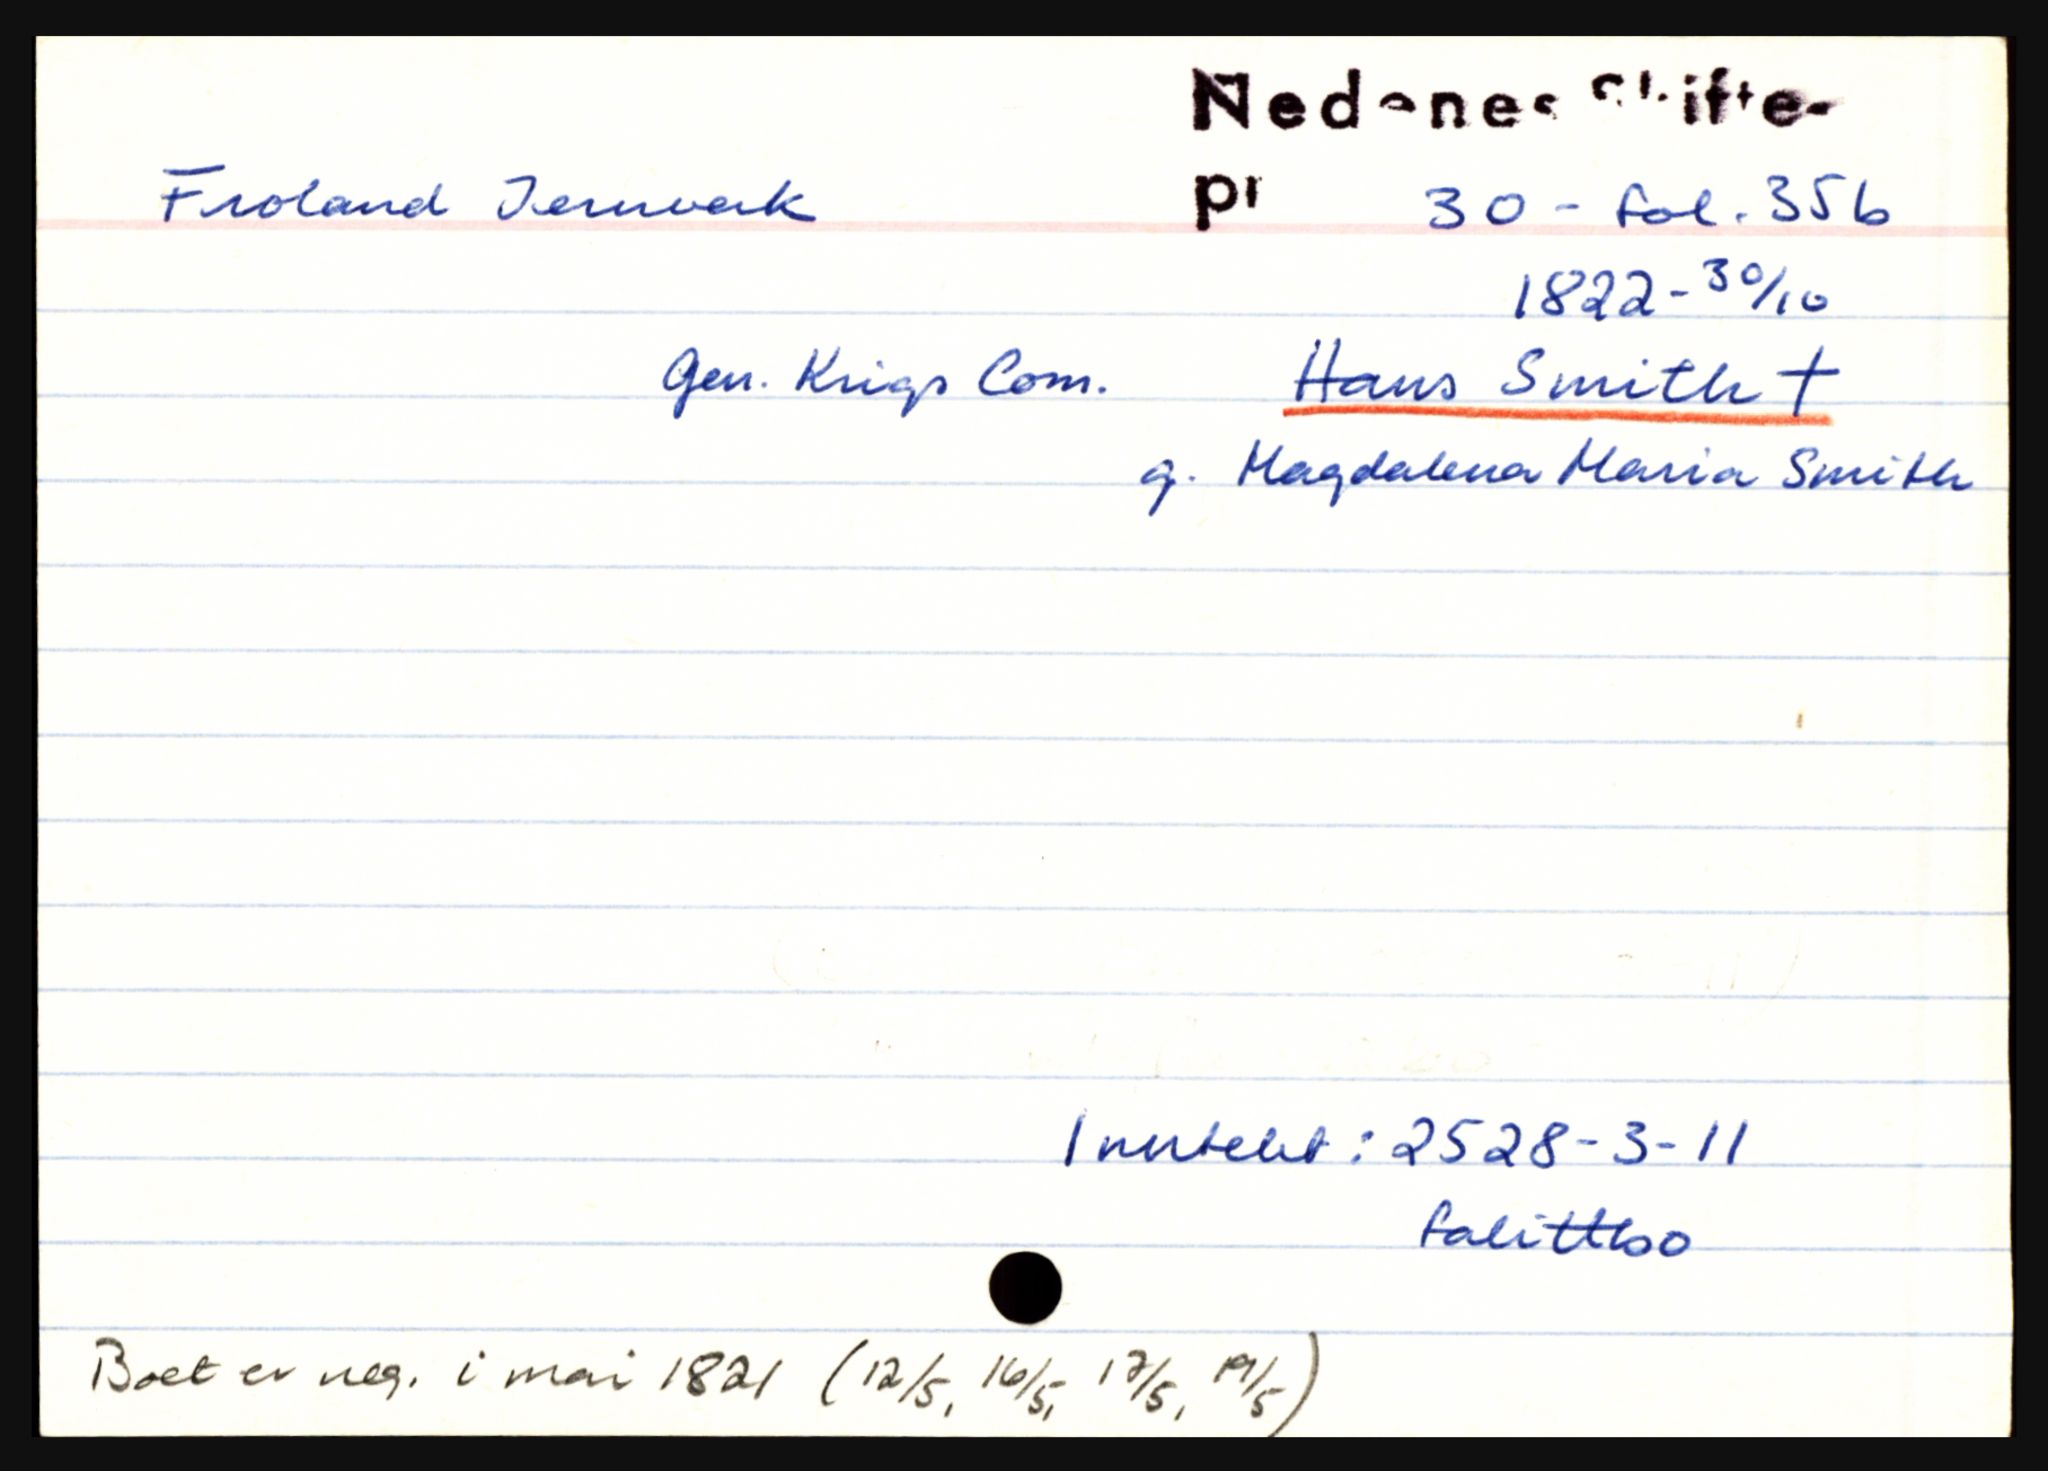 Nedenes Skifte-
Froland Jernverk pr 30 - fol. 35b
1822 - 30/10
Gen. Krigs Com. Hans Smith †
g. Magdalena Maria Smith
Inntekt : 2528 - 3 - 11
falittbo
Boet er reg. i mai 1821 (12/5, 16/5, 17/5, 19/5)